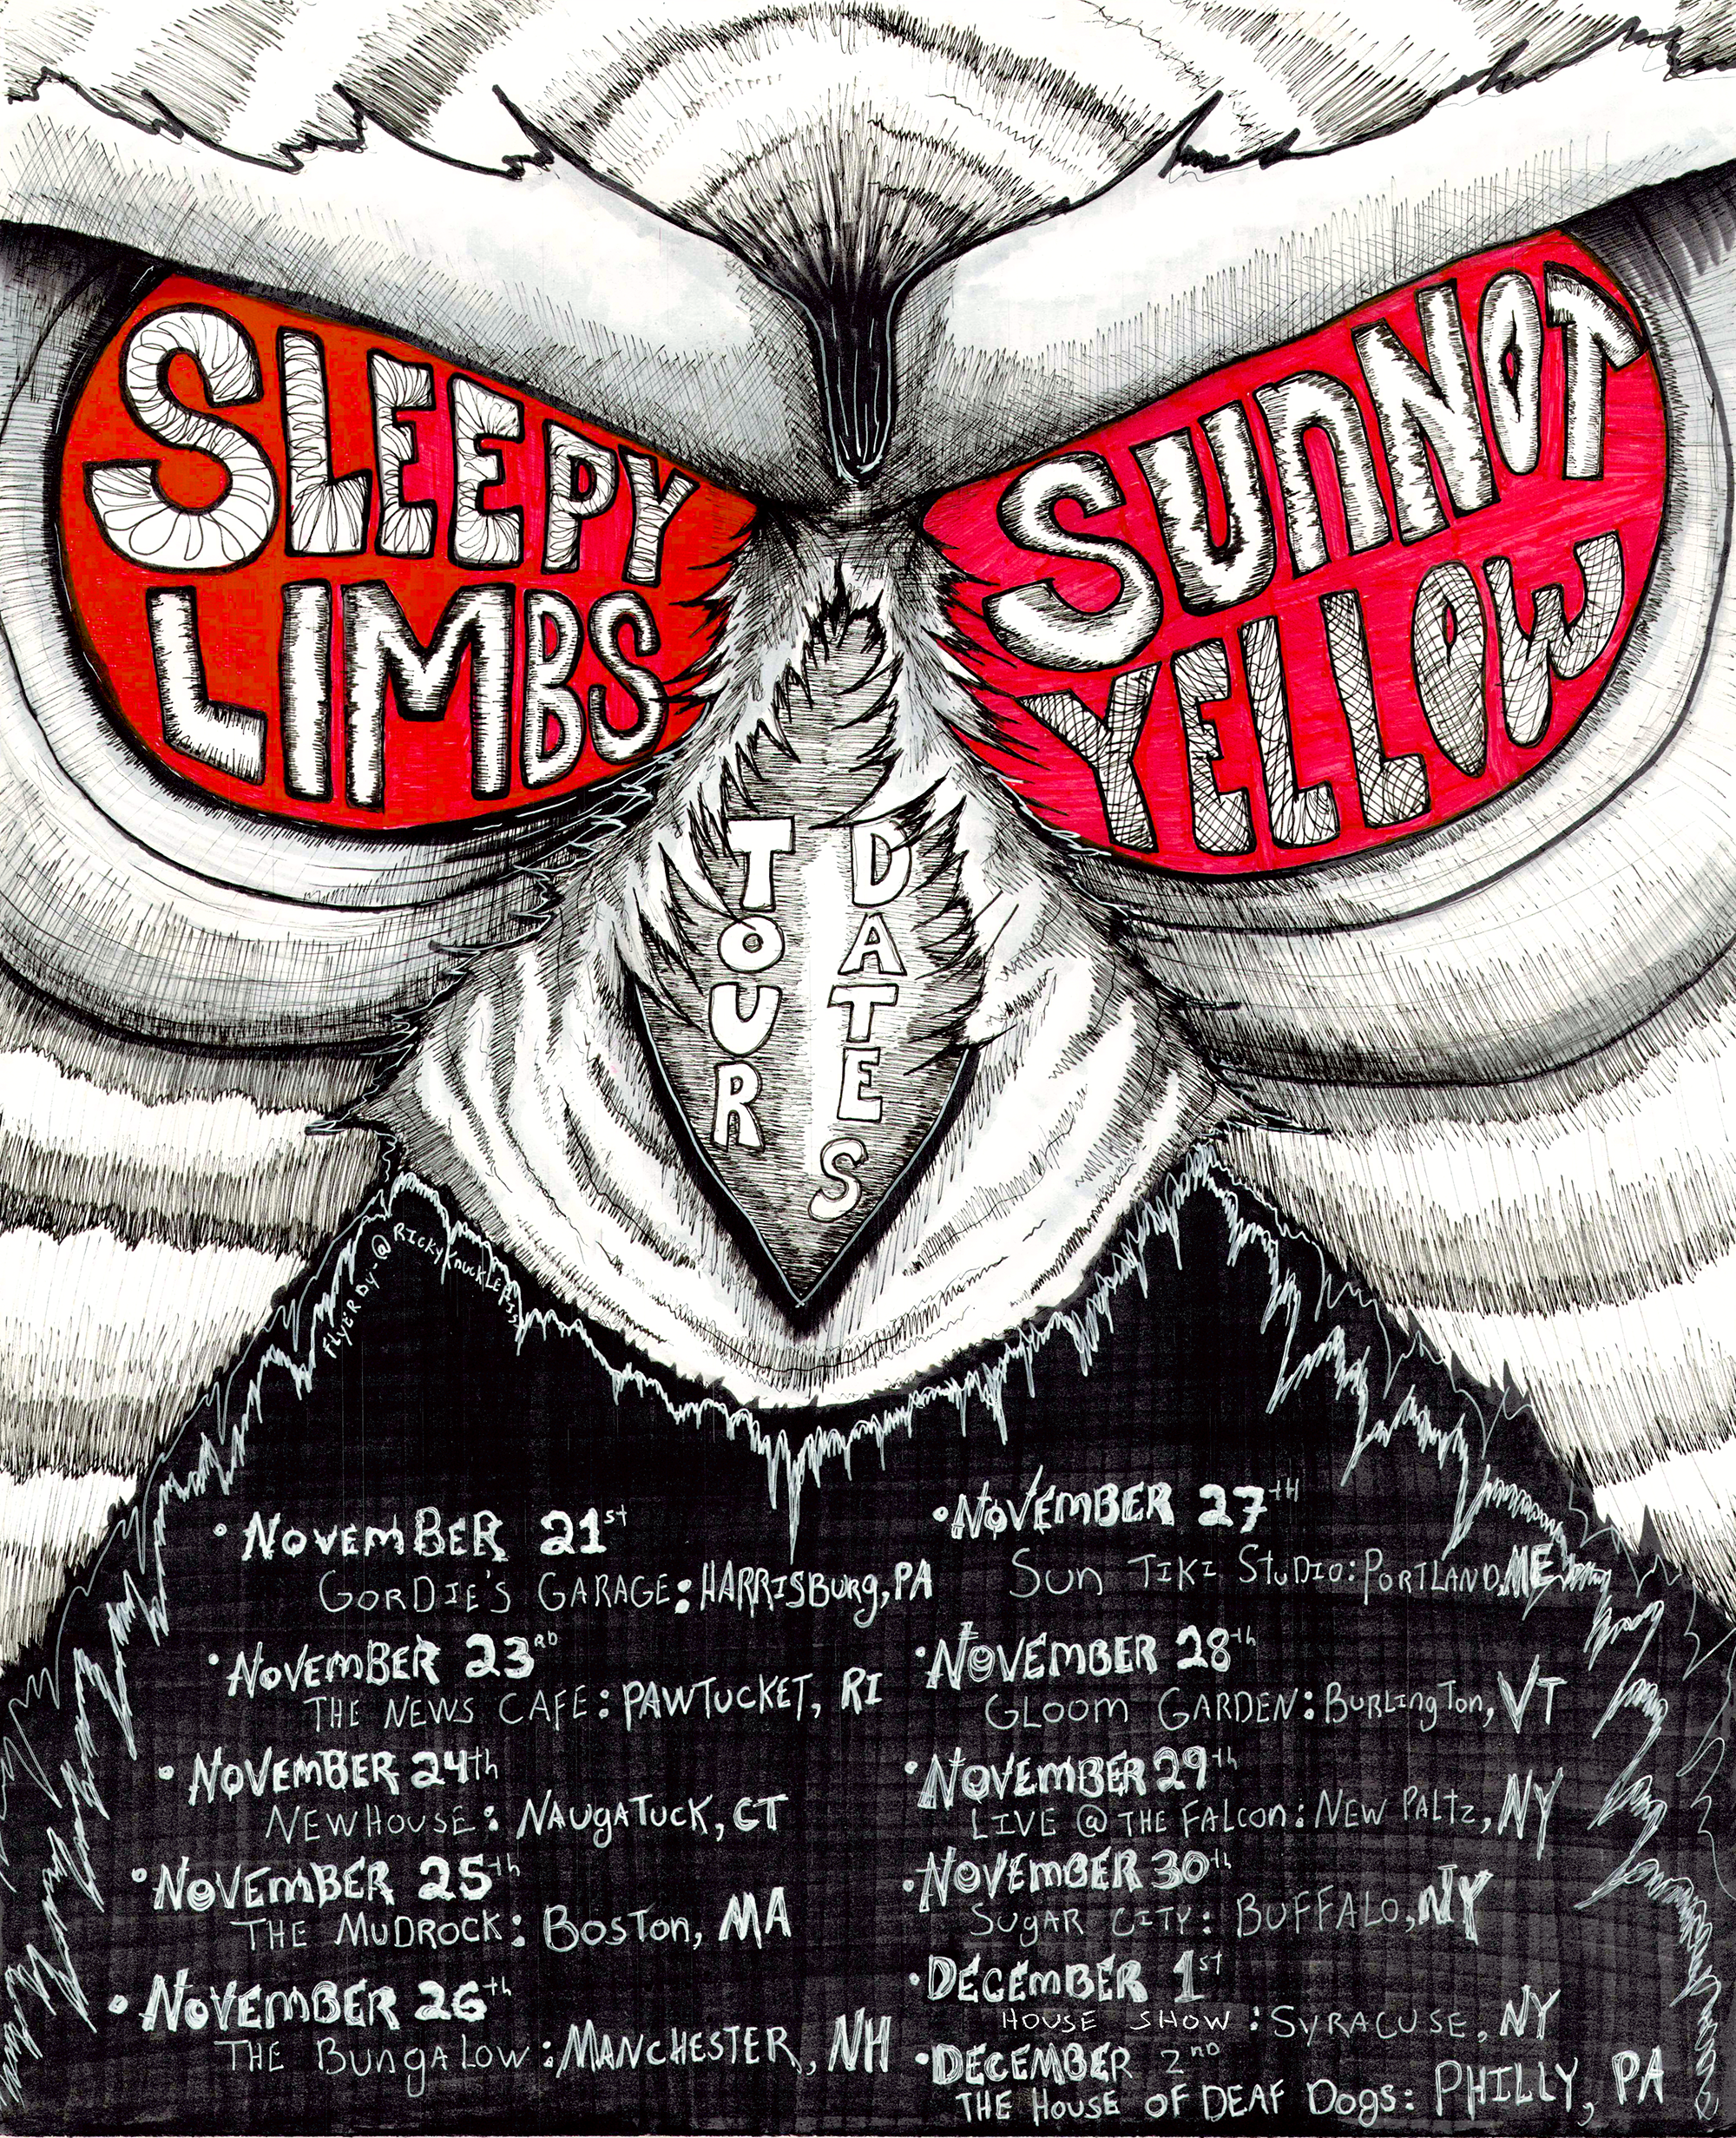 SLEEPY
LIMBS
SUNNOT
YELLOW
TOUR
DATES
FLYER BY-@RICKYKNUCKLESSS
•NOVEMBER 21st
GORDIE'S GARAGE: HARRISBURG, PA
•NOVEMBER 23RD
THE NEWS CAFE: PAWTUCKET, RI
•NOVEMBER 24th
NEWHOUSE: NAUGATUCK, CT
•NOVEMBER 25th
THE MUDROCK: BOSTON, MA
•NOVEMBER 26th
THE BUNGALOW: MANCHESTER, NH
•NOVEMBER 27TH
SUN TIKI STUDIO: PORTLAND, ME
•NOVEMBER 28th
GLOOM GARDEN: BURLINGTON, VT
•NOVEMBER 29th
LIVE @ THE FALCON: NEW PALTZ, NY
•NOVEMBER 30th
SUGAR CITY: BUFFALO, NY
•DECEMBER 1ST
HOUSE SHOW: SYRACUSE, NY
•DECEMBER 2ND
THE HOUSE OF DEAF DOGS: PHILLY, PA